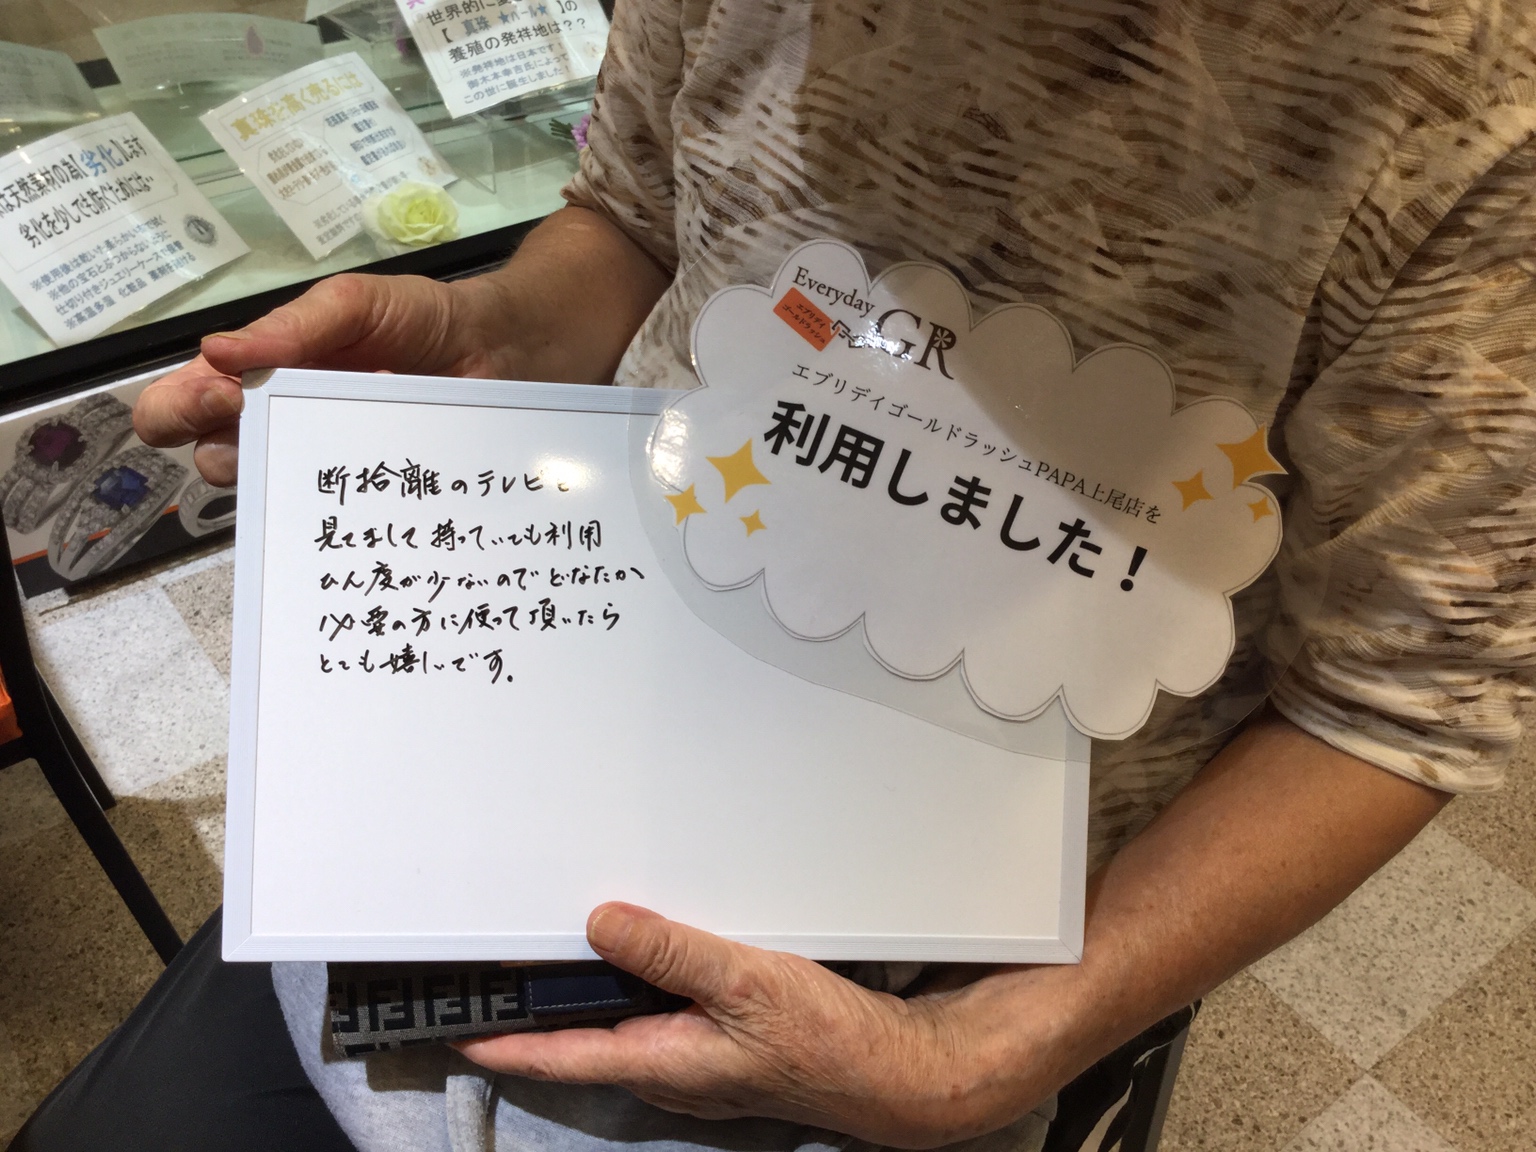 世界的に
【 真珠 ★パール★ 】の
養殖の発祥地は？？
※発祥地は日本です！
御木本幸吉氏によって
この世に誕生しました
真珠を高く売るには
な天然素材の為【劣化】します
劣化を少しでも防ぐためには…
※使用後は乾いた柔らかい布で拭く
※他の宝石とぶつからないように
仕切り付きジュエリーケースで保管
※高温多湿 化粧品 薬剤を避ける
Everyday
エブリデイ
ゴールドラッシュ
GR
エブリデイゴールドラッシュPAPA上尾店を
利用しました！
断捨離のテレビを
見てまして持っていても利用
ひん度が少ないのでどなたか
必要の方に使って頂いたら
とても嬉しいです。